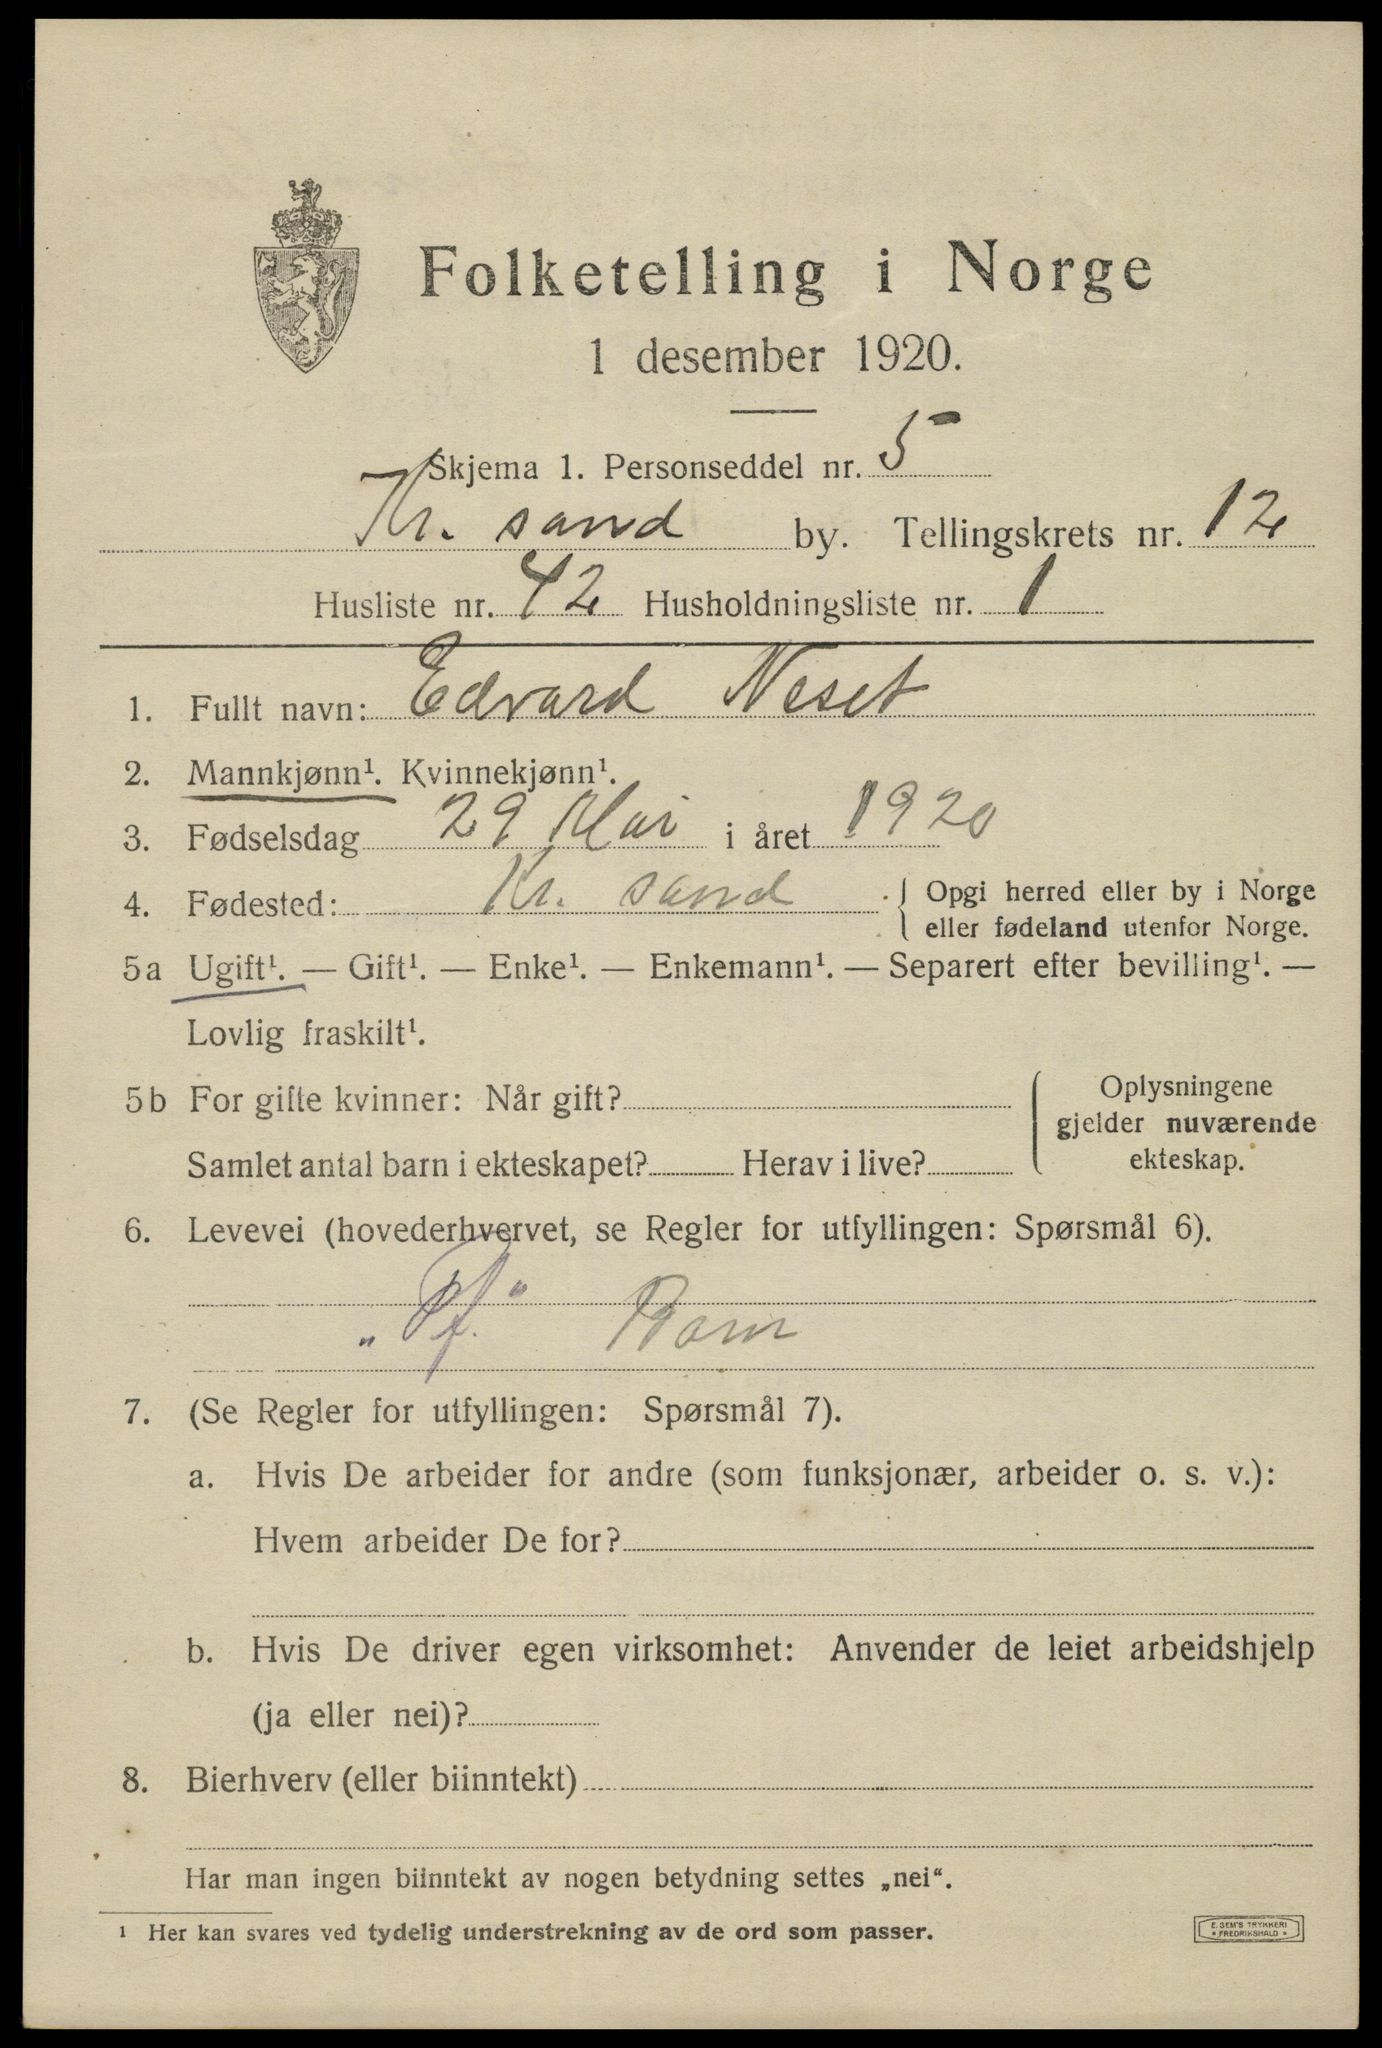 Folketelling i Norge
1 desember 1920.
Skjema 1. Personseddel nr. 5
Kr. sand by. Tellingskrets nr. 12
Husliste nr. 42 Husholdningsliste nr. 1
1. Fullt navn: Edvard Neset
2. Mannkjønn¹. Kvinnekjønn¹.
3. Fødselsdag 29 Mai i året 1920
4. Fødested: Kr. sand { Opgi herred eller by i Norge
eller fødeland utenfor Norge.
5a Ugift¹. — Gift¹. — Enke¹. — Enkemann¹. — Separert efter bevilling¹. —
Lovlig fraskilt¹.
5b For gifte kvinner: Når gift? { Oplysningene
gjelder nuværende
Samlet antal barn i ekteskapet? Herav i live? ekteskap.
6. Levevei (hovederhvervet, se Regler for utfyllingen: Spørsmål 6).
„Pf." Barn
7. (Se Regler for utfyllingen: Spørsmål 7).
a. Hvis De arbeider for andre (som funksjonær, arbeider o. s. v.):
Hvem arbeider De for?
b. Hvis De driver egen virksomhet: Anvender de leiet arbeidshjelp
(ja eller nei)?
8. Bierhverv (eller biinntekt)
Har man ingen biinntekt av nogen betydning settes „nei“.
1 Her kan svares ved tydelig understrekning av de ord som passer.
E. SEM'S TRYKKERI
• FREDRIKSHALD •